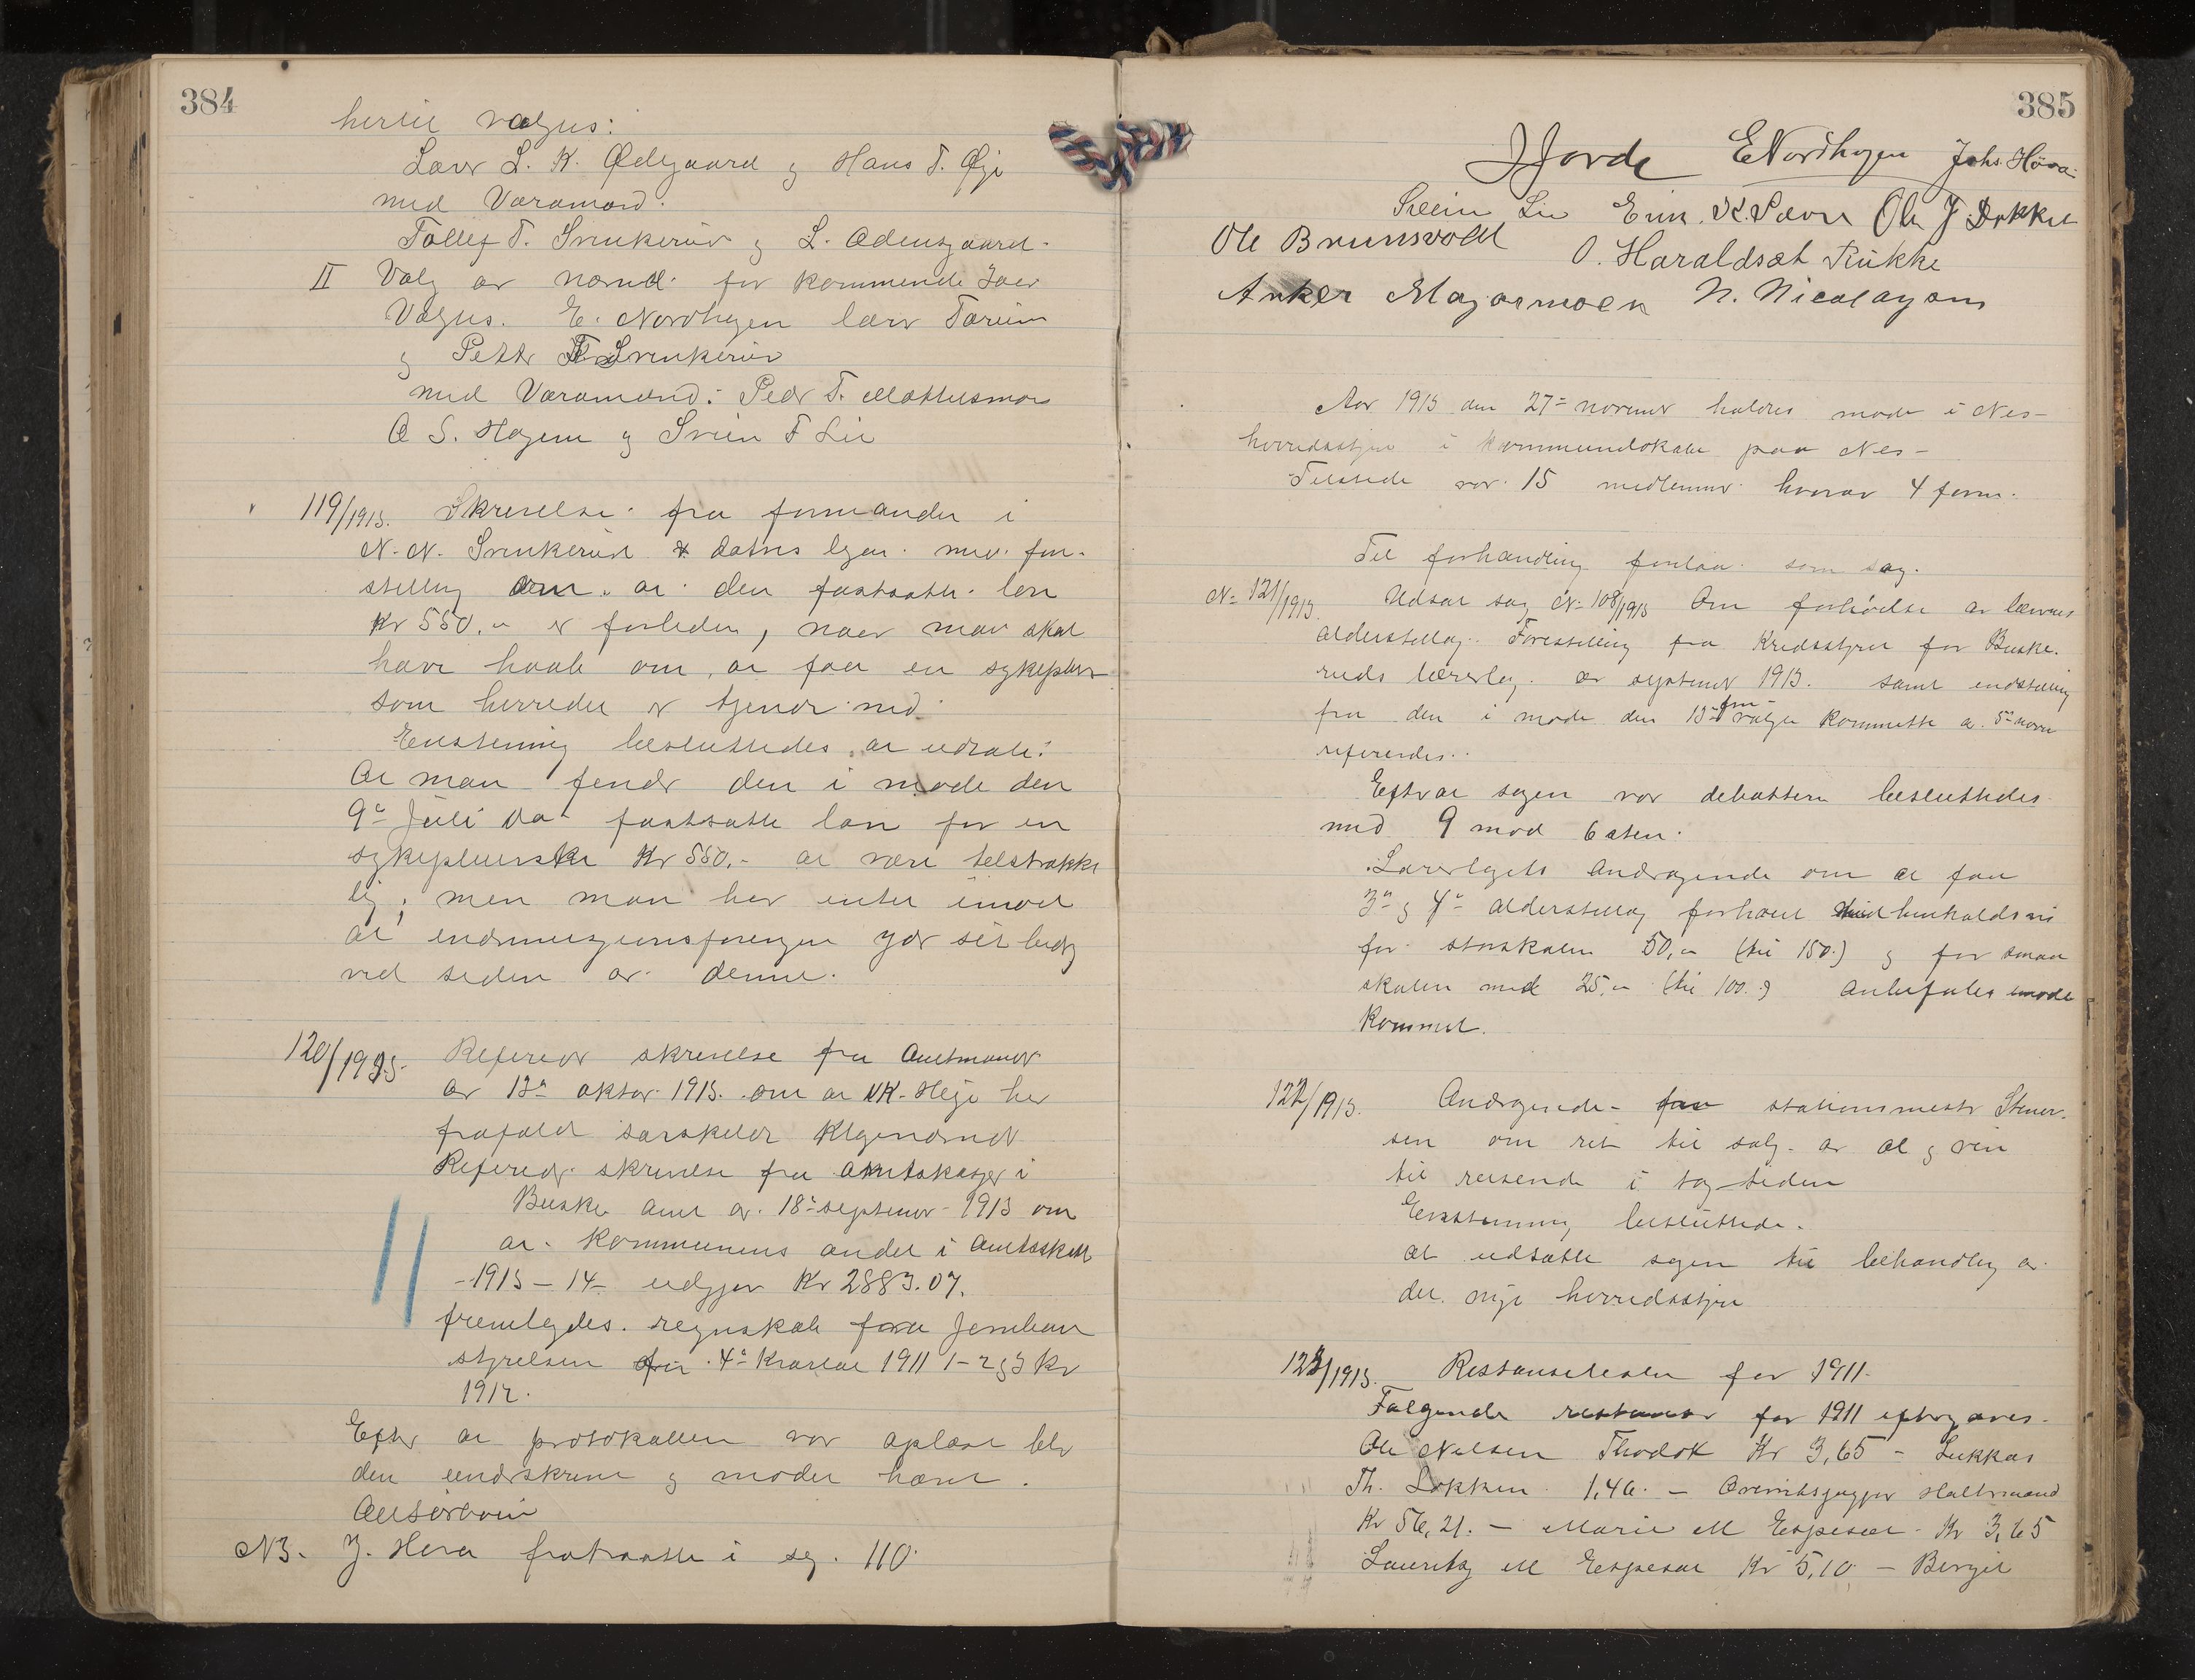 384
hertil vælges:
Lærer L. K. Ødegaard og Hans T. Øye
med Varamænd.
Tollef T. Svenkerud og L. Ødensgaard.
II Valg av nævnd for kommende Aar
Vælges. E. Nordhagen lærer
og Petter Svenkerud
med Varamænd: Peder T.
O S. Hagene og Svein T Lie
119/1913. Skrivelse fra formanden i
N. N. Svenkerud med fore-
stilling om at den fastsatte løn
Kr 550,- er forliden, naar man skal
have haab om at faa en sykepleier
som herredet er tjent med.
Enstemmig besluttedes at udtale:
At man finder den i møde den
9de Juli da fastsatte løn for en
sykepleierske Kr 550,- at være tilstrække
lig, men man har intet imod
at yder sit bidrag
ved siden av denne.
120/1913. Refereret skrivelse fra Amtmand
av 13de oktbr. 1913. om at
frafald særskilt
Refereret skrivelse fra Amtskasserer i
Buske Amt av 18de septembr 1913 om
at Kommunens andel i Amtsskatt
-1913-14- udgjør Kr 2883.07.
fremlagdes regnskab fra Jernbane
styrelsen for 4de Kvartal 1911 1-2 og 3 Kv
1912.
Efter at protokollen var oplæst blev
den underskreven og mødet hævet.
NB. J. Hova fratraadte i sag 110
385
J Jorde E Nordhagen Johs. Hova
Svein Lie Erik K. Sævre Ole J Dokket
Ole Brunsvold O. Haraldset Rukke
Anker Magarmoen N. Nicolaysen
Aar 1913 den 27de novembr holdtes møde i Nes
herredsstyre i kommunelokale paa Nes
Tilstede var 15 medlemmer hvorav 4 form.
Til forhandling forelaa som sag.
No 121/1913. Udsat sag No 108/1913 Om forhøielse av læreres
alderstillæg. Forestilling fra Kredsstyret for Buske-
ruds lærerlag av septembr 1913. samt indstilling
fra den i møde den 13de valgte Kommitte av 5te novbr
refereredes.
Efter at sagen var debattert besluttedes
med 9 mod 6 stem.
Lærerlagets andragende om at faa
3die og 4de alderstillæg forhøiet med henholdsvis
for storskolen 50,- (til 150.) og for smaa
skolen med 25,- (til 100.) anbefales imøde
kommet.
122/1913. Andragende fra stationsmester Stener-
sen om ret til salg av øl og vin
til reisende i togtiden
Enstemmig besluttede.
at udsætte sagen til behandling av
det nye herredsstyre
123/1913. Restanselisten for 1911.
Følgende restanser for 1911 eftergaves.
Ole Nilsen Thodok Kr 3,65 - Lukkas
Th. Løkken 1,46. - Halvmand
Kr 56,21. - Marie M Espeset Kr 3,65
Lauritz M Espeset Kr 5,10 - Bergit